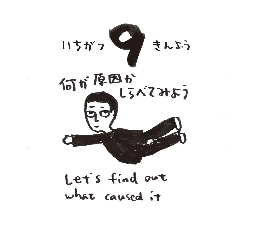 いちがつ 9 きんよう
何が原因か
しらべてみよう
Let's find out
what caused it